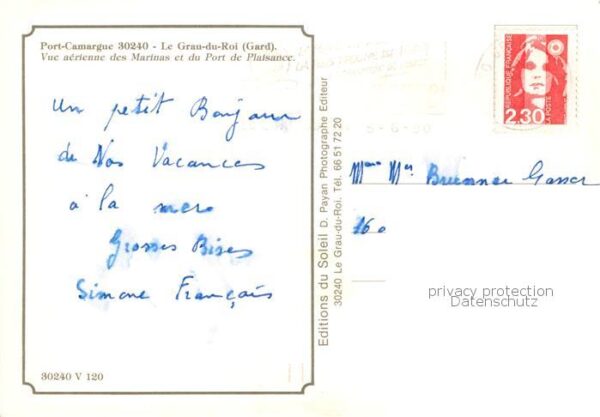 Port-Camargue 30240 - Le Grau-du-Roi (Gard).
Vue aérienne des Marinas et du Port de Plaisance.
Un petit Bonjour
de Nos Vacances
à la mer
Grosses Bises
Simone François
30240 V 120
Editions du Soleil D. Payan Photographe Editeur
30240 Le Grau-du-Roi. Tél. 66 51 72 20
REPUBLIQUE FRANÇAISE
2,30
LA POSTE
5-6-90
Mme Mr Brienner Gasser
160
privacy protection
Datenschutz